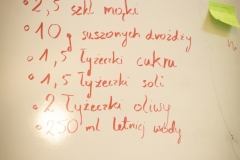 • 2,5 szkl mąki
• 10 g suszonych drożdży
• 1,5 łyżeczki cukru
• 1,5 łyżeczki soli
• 2 łyżeczka oliwy
• 250 ml letniej wody